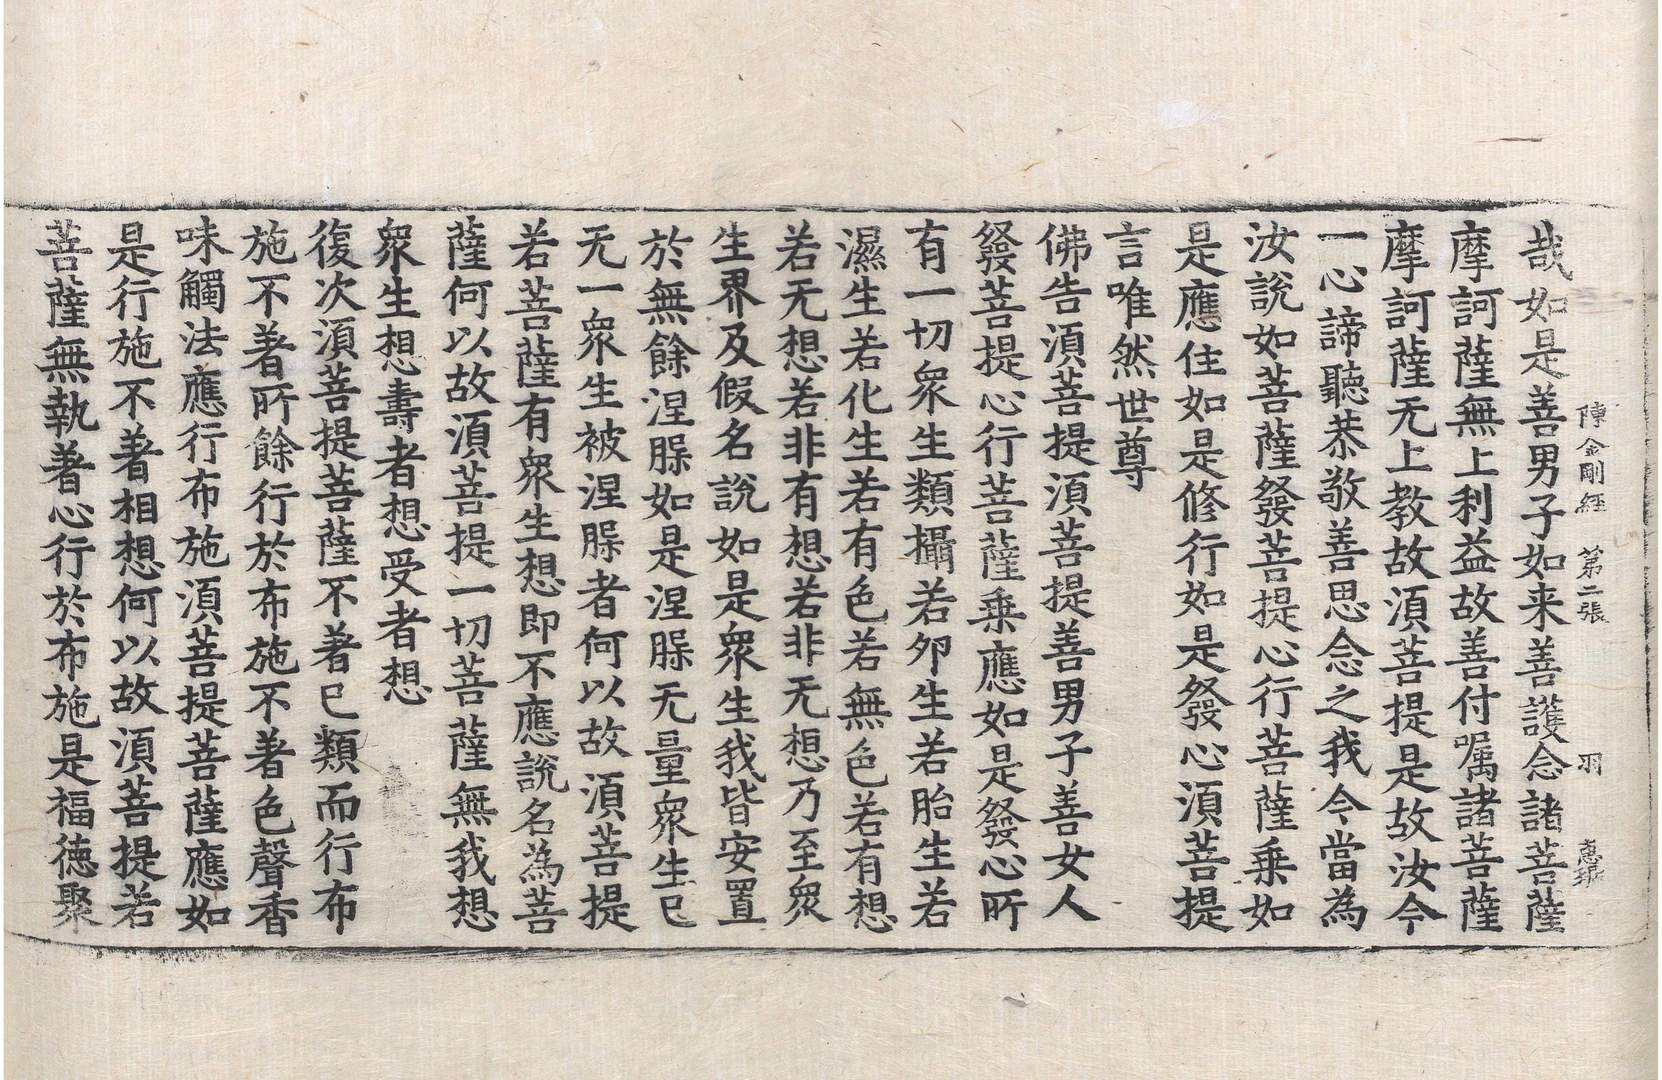 陳金剛經 第二張 羽
哉如是善男子如来善護念諸菩薩
摩訶薩無上利益故善付嘱諸菩薩
摩訶薩无上教故湏菩提是故汝今
一心諦聽恭敬善思念之我今當為
汝說如菩薩發菩提心行菩薩乗如
是應住如是修行如是發心湏菩提
言唯然世尊
佛告湏菩提湏菩提善男子善女人
發菩提心行菩薩乗應如是發心所
有一切衆生類攝若夘生若胎生若
濕生若化生若有色若無色若有想
若无想若非有想若非无想乃至衆
生界及假名說如是衆生我皆安置
於無餘涅槃如是涅槃无量衆生已
无一衆生被涅槃者何以故湏菩提
若菩薩有衆生想即不應說名為菩
薩何以故湏菩提一切菩薩無我想
衆生想壽者想受者想
復次湏菩提菩薩不著已類而行布
施不著所餘行於布施不著色聲香
味觸法應行布施湏菩提菩薩應如
是行施不著相想何以故湏菩提若
菩薩無執著心行於布施是福徳聚